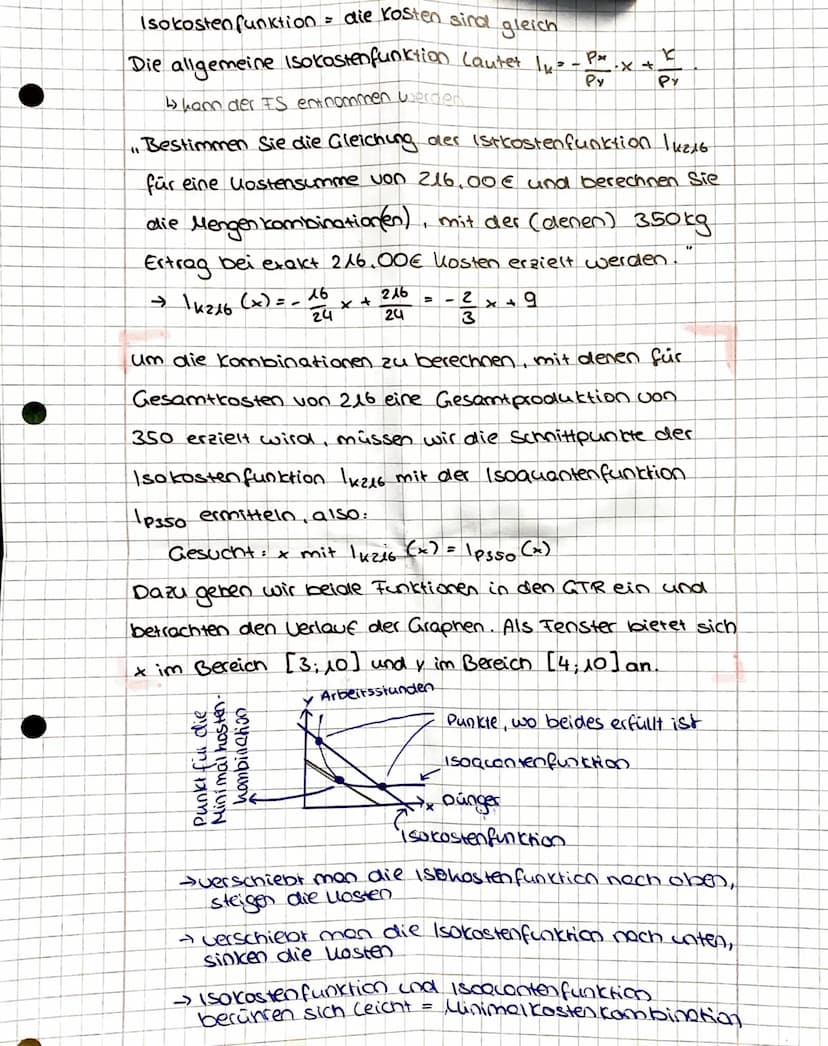 Isokostenfunktion = die Kosten sind gleich
Die allgemeine Isokostenfunktion lautet I_K = - Px/Py · x + K/Py .
↳ kann der FS entnommen werden
„Bestimmen Sie die Gleichung der Isokostenfunktion I_K216
für eine Kostensumme von 216,00€ und berechnen Sie
die Mengenkombination(en), mit der (denen) 350kg
Ertrag bei exakt 216,00€ Kosten erzielt werden."
→ I_K216 (x) = - 16/24 x + 216/24 = - 2/3 x + 9
um die Kombinationen zu berechnen, mit denen für
Gesamtkosten von 216 eine Gesamtproduktion von
350 erzielt wird, müssen wir die Schnittpunkte der
Isokostenfunktion I_K216 mit der Isoquantenfunktion
I_P350 ermitteln, also:
Gesucht: x mit I_K216 (x) = I_P350 (x)
Dazu geben wir beide Funktionen in den GTR ein und
betrachten den Verlauf der Graphen. Als Fenster bietet sich
x im Bereich [3;10] und y im Bereich [4;10] an.
y Arbeitsstunden
Punkt für die
Minimalkosten-
kombination
Punkte, wo beides erfüllt ist
Isoquantenfunktion
x Dünger
Isokostenfunktion
→ verschiebt man die Isokostenfunktion nach oben,
steigen die Kosten
→ verschiebt man die Isokostenfunktion nach unten,
sinken die Kosten
→ Isokostenfunktion und Isoquantenfunktion
berühren sich leicht = Minimalkostenkombination